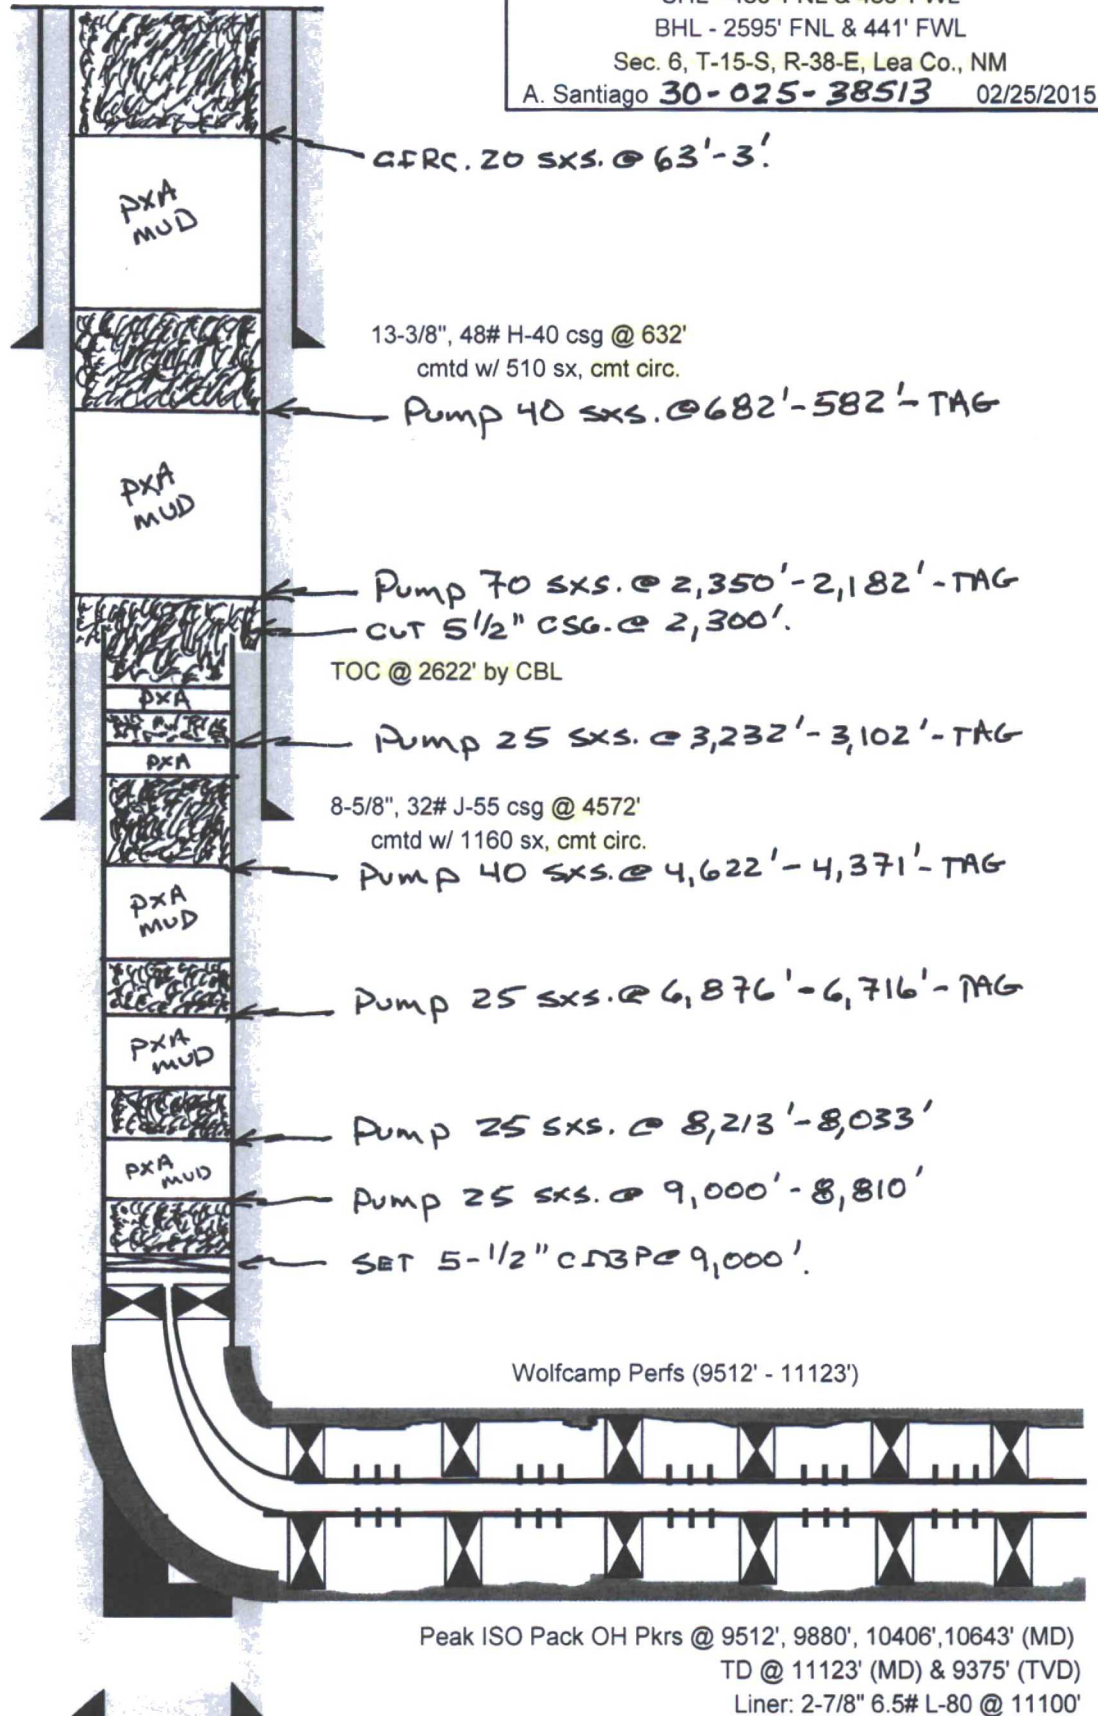 BHL - 2595' FNL & 441' FWL
Sec. 6, T-15-S, R-38-E, Lea Co., NM
A. Santiago 30-025-38513 02/25/2015
20 sxs. @ 63'-3'.
PXA
MUD
13-3/8", 48# H-40 csg @ 632'
cmtd w/ 510 sx, cmt circ.
Pump 40 sxs. @ 682'-582'-TAG
PXA
MUD
Pump 70 sxs. @ 2,350'-2,182'-TAG
CUT 5 1/2" CSG. @ 2,300'.
TOC @ 2622' by CBL
PXA
Pump 25 sxs. @ 3,232'-3,102'-TAG
PXA
8-5/8", 32# J-55 csg @ 4572'
cmtd w/ 1160 sx, cmt circ.
Pump 40 sxs. @ 4,622'-4,371'-TAG
PXA
MUD
Pump 25 sxs. @ 6,876'-6,716'-TAG
PXA
MUD
Pump 25 sxs. @ 8,213'-8,033'
PXA
MUD
Pump 25 sxs. @ 9,000'-8,810'
SET 5-1/2" CIBP @ 9,000'.
Wolfcamp Perfs (9512' - 11123')
Peak ISO Pack OH Pkrs @ 9512', 9880', 10406',10643' (MD)
TD @ 11123' (MD) & 9375' (TVD)
Liner: 2-7/8" 6.5# L-80 @ 11100'